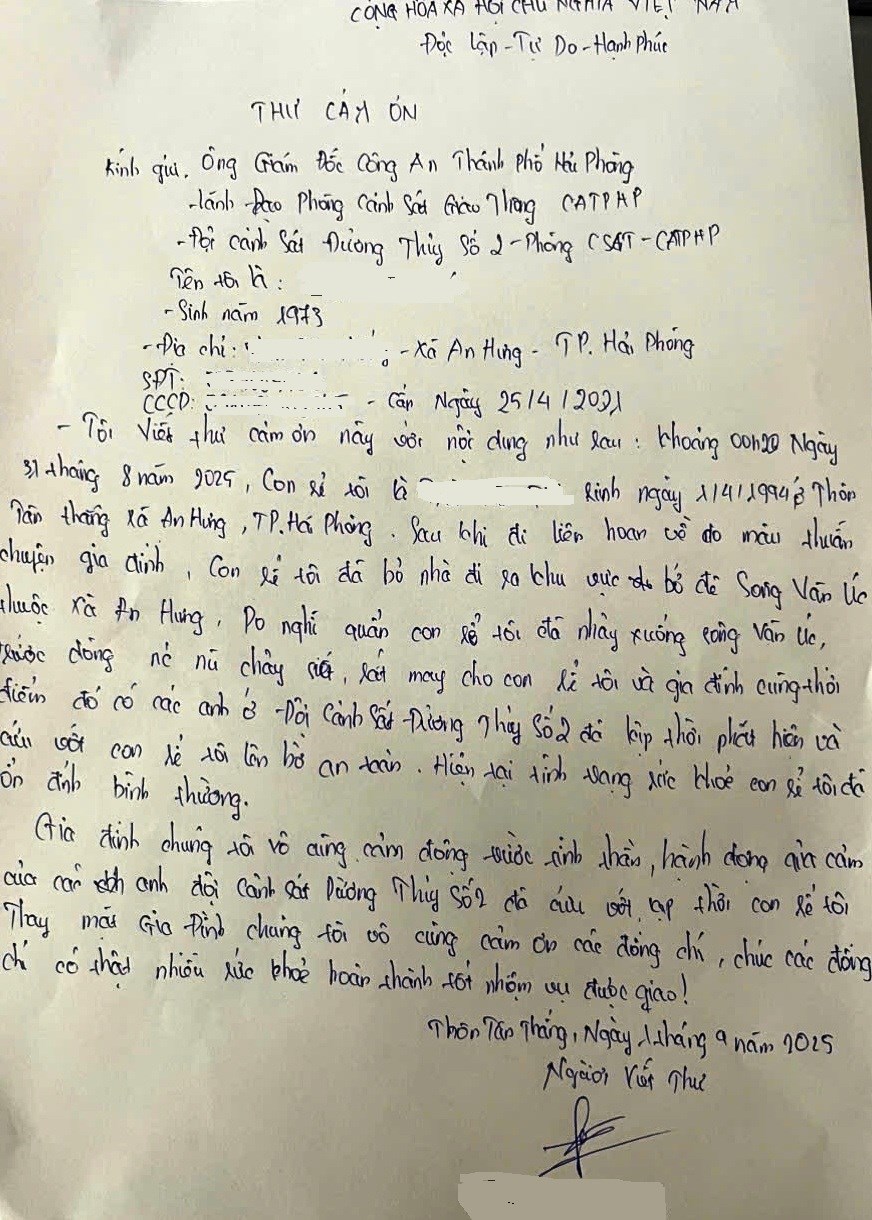 CỘNG HÒA XÃ HỘI CHỦ NGHĨA VIỆT NAM
Độc lập - Tự Do - Hạnh Phúc
THƯ CẢM ƠN
Kính gửi. Ông Giám Đốc Công An Thành Phố Hải Phòng
- Lãnh Đạo Phòng Cảnh Sát Giao Thông CATPHP
- Đội Cảnh Sát Đường Thủy Số 2 - Phòng CSGT - CATPHP
Tên tôi là :
- Sinh năm 1973
- Địa chỉ : - Xã An Hưng - TP. Hải Phòng
SĐT:
CCCD: - Cấp Ngày 25/4/2021
- Tôi Viết thư cảm ơn này với nội dung như sau : khoảng 00h20 Ngày
31 tháng 8 năm 2025, Con rể tôi là sinh ngày 1/4/1994 ở Thôn
Tân thắng xã An Hưng, TP. Hải Phòng. Sau khi đi liên hoan về do mâu thuẫn
chuyện gia đình, Con rể tôi đã bỏ nhà đi ra khu vực bờ đê Sông Văn Úc
thuộc xã An Hưng, Do nghĩ quẩn con rể tôi đã nhảy xuống sông Văn Úc,
nước dòng chảy siết, rất may cho con rể tôi và gia đình cùng thời
điểm đó có các anh ở Đội Cảnh Sát Đường Thủy Số 2 đã kịp thời phát hiện và
cứu vớt con rể tôi lên bờ an toàn. Hiện tại tình trạng sức khoẻ con rể tôi đã
ổn định bình thường.
Gia đình chúng tôi vô cùng cảm động trước tinh thần, hành động quả cảm
của các anh đội Cảnh Sát Đường Thủy Số 2 đã cứu vớt kịp thời con rể tôi
Thay mặt Gia Đình chúng tôi vô cùng cảm ơn các đồng chí, chúc các đồng
chí có thật nhiều sức khoẻ hoàn thành tốt nhiệm vụ được giao!
Thôn Tân Thắng, Ngày 1 tháng 9 năm 2025
Người Viết Thư